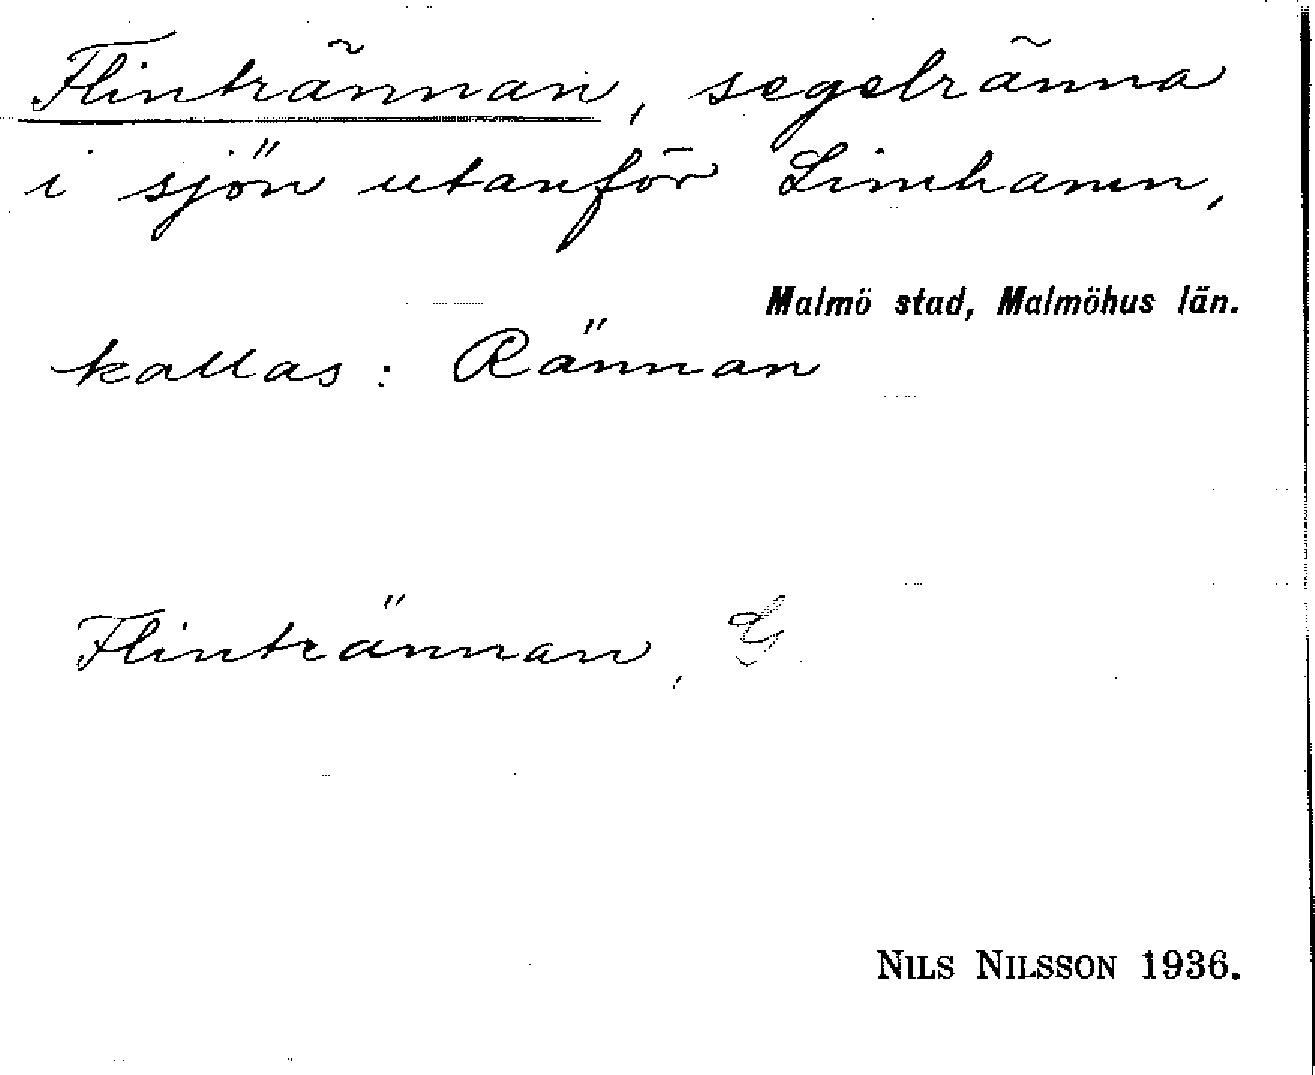 Flintrännan, segelränna
i sjön utanför Limhamn,
Malmö stad, Malmöhus län.
kallas: Rännan
Flintrännan, G
NILS NILSSON 1936.